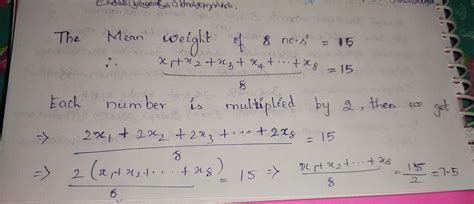 The Mean weight of 8 no.s' = 15
∴ x₁+x₂+x₃+x₄+⋯+x₈ / 8 = 15
Each number is multiplied by 2, then we get
⇒ 2x₁ + 2x₂ + 2x₃ + ⋯ + 2x₈ / 8 = 15
⇒ 2(x₁+x₂+⋯+x₈) / 8 = 15 ⇒ x₁+x₂+⋯+x₈ / 8 = 15/2 = 7.5